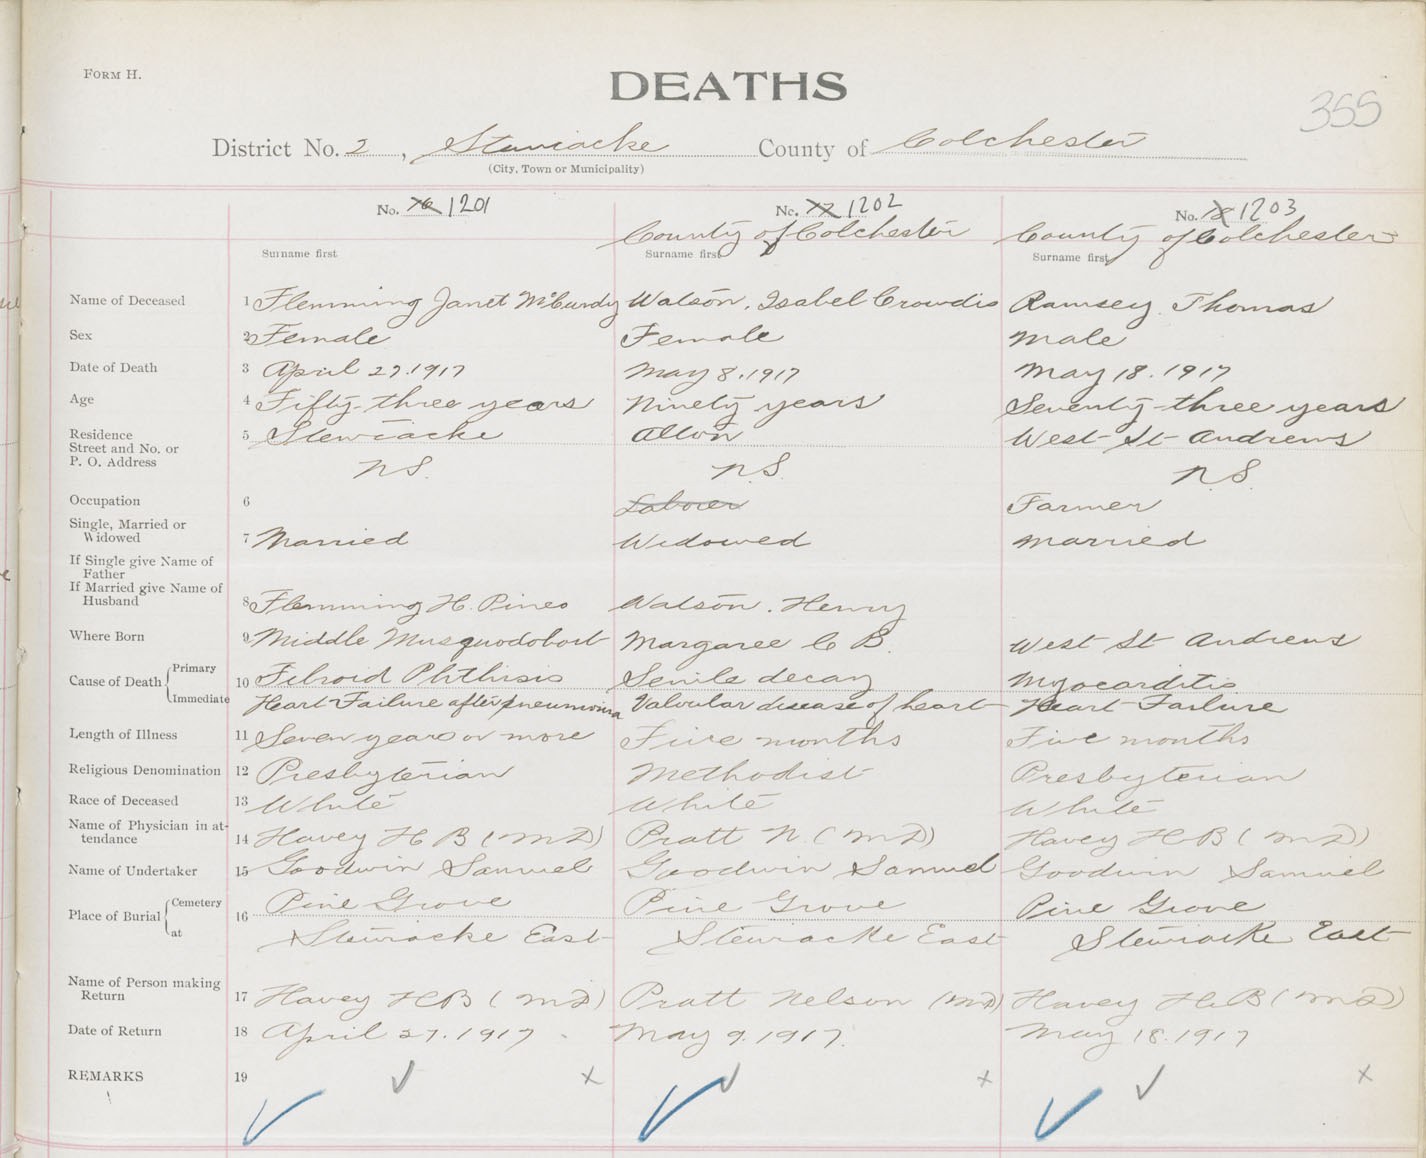 FORM H.
DEATHS
355
District No. 2, Stewiacke County of Colchester
(City, Town or Municipality)
No. 76 1201 No. 77 1202 No. 78 1203
County of Colchester County of Colchester
Surname first Surname first Surname first
Name of Deceased 1 Flemming Janet McCurdy Watson, Isabel Crowdis Ramsey Thomas
Sex 2 Female Female Male
Date of Death 3 April 27. 1917 May 8. 1917 May 18. 1917
Age 4 Fifty-three years Ninety years Seventy-three years
Residence 5 Stewiacke Alton West St Andrews
Street and No. or
P. O. Address N S. N. S. N. S.
Occupation 6 Laborer Farmer
Single, Married or
Widowed 7 Married Widowed Married
If Single give Name of
Father
If Married give Name of
Husband 8 Flemming H. Pineo Watson. Henry
Where Born 9 Middle Musquodoboit Margaree C B. West St Andrews
Cause of Death Primary 10 Fibroid Phthisis Senile decay Myocarditis
Immediate Heart Failure after pneumonia Valvular disease of heart Heart Failure
Length of Illness 11 Seven years or more Five months Five months
Religious Denomination 12 Presbyterian Methodist Presbyterian
Race of Deceased 13 White White White
Name of Physician in at-
tendance 14 Havey H B (MD) Pratt N. (MD) Havey H B (MD)
Name of Undertaker 15 Goodwin Samuel Goodwin Samuel Goodwin Samuel
Place of Burial Cemetery 16 Pine Grove Pine Grove Pine Grove
at Stewiacke East Stewiacke East Stewiacke East
Name of Person making
Return 17 Havey H B (MD) Pratt Nelson (MD) Havey H. B (MD)
Date of Return 18 April 27. 1917 May 9. 1917. May 18. 1917
REMARKS 19